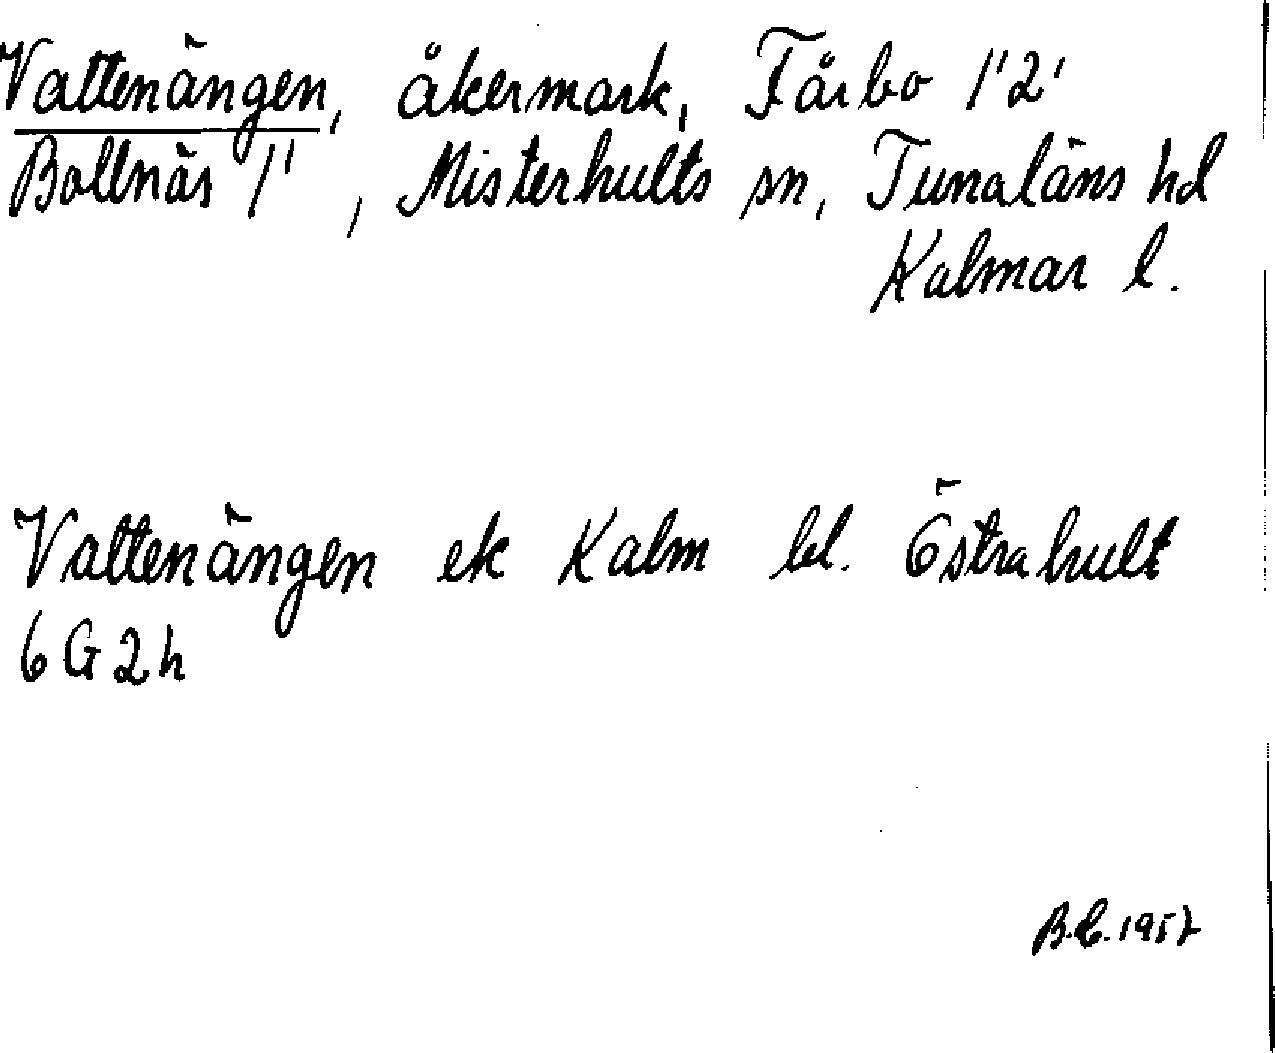 Vattenängen, åkermark, Fårbo 1'2'
Bollnäs 1', Misterhults sn, Tunaläns hd
Kalmar l.
Vattenängen ek Kalm bl. Östrahult
6G2h
B.C. 1957